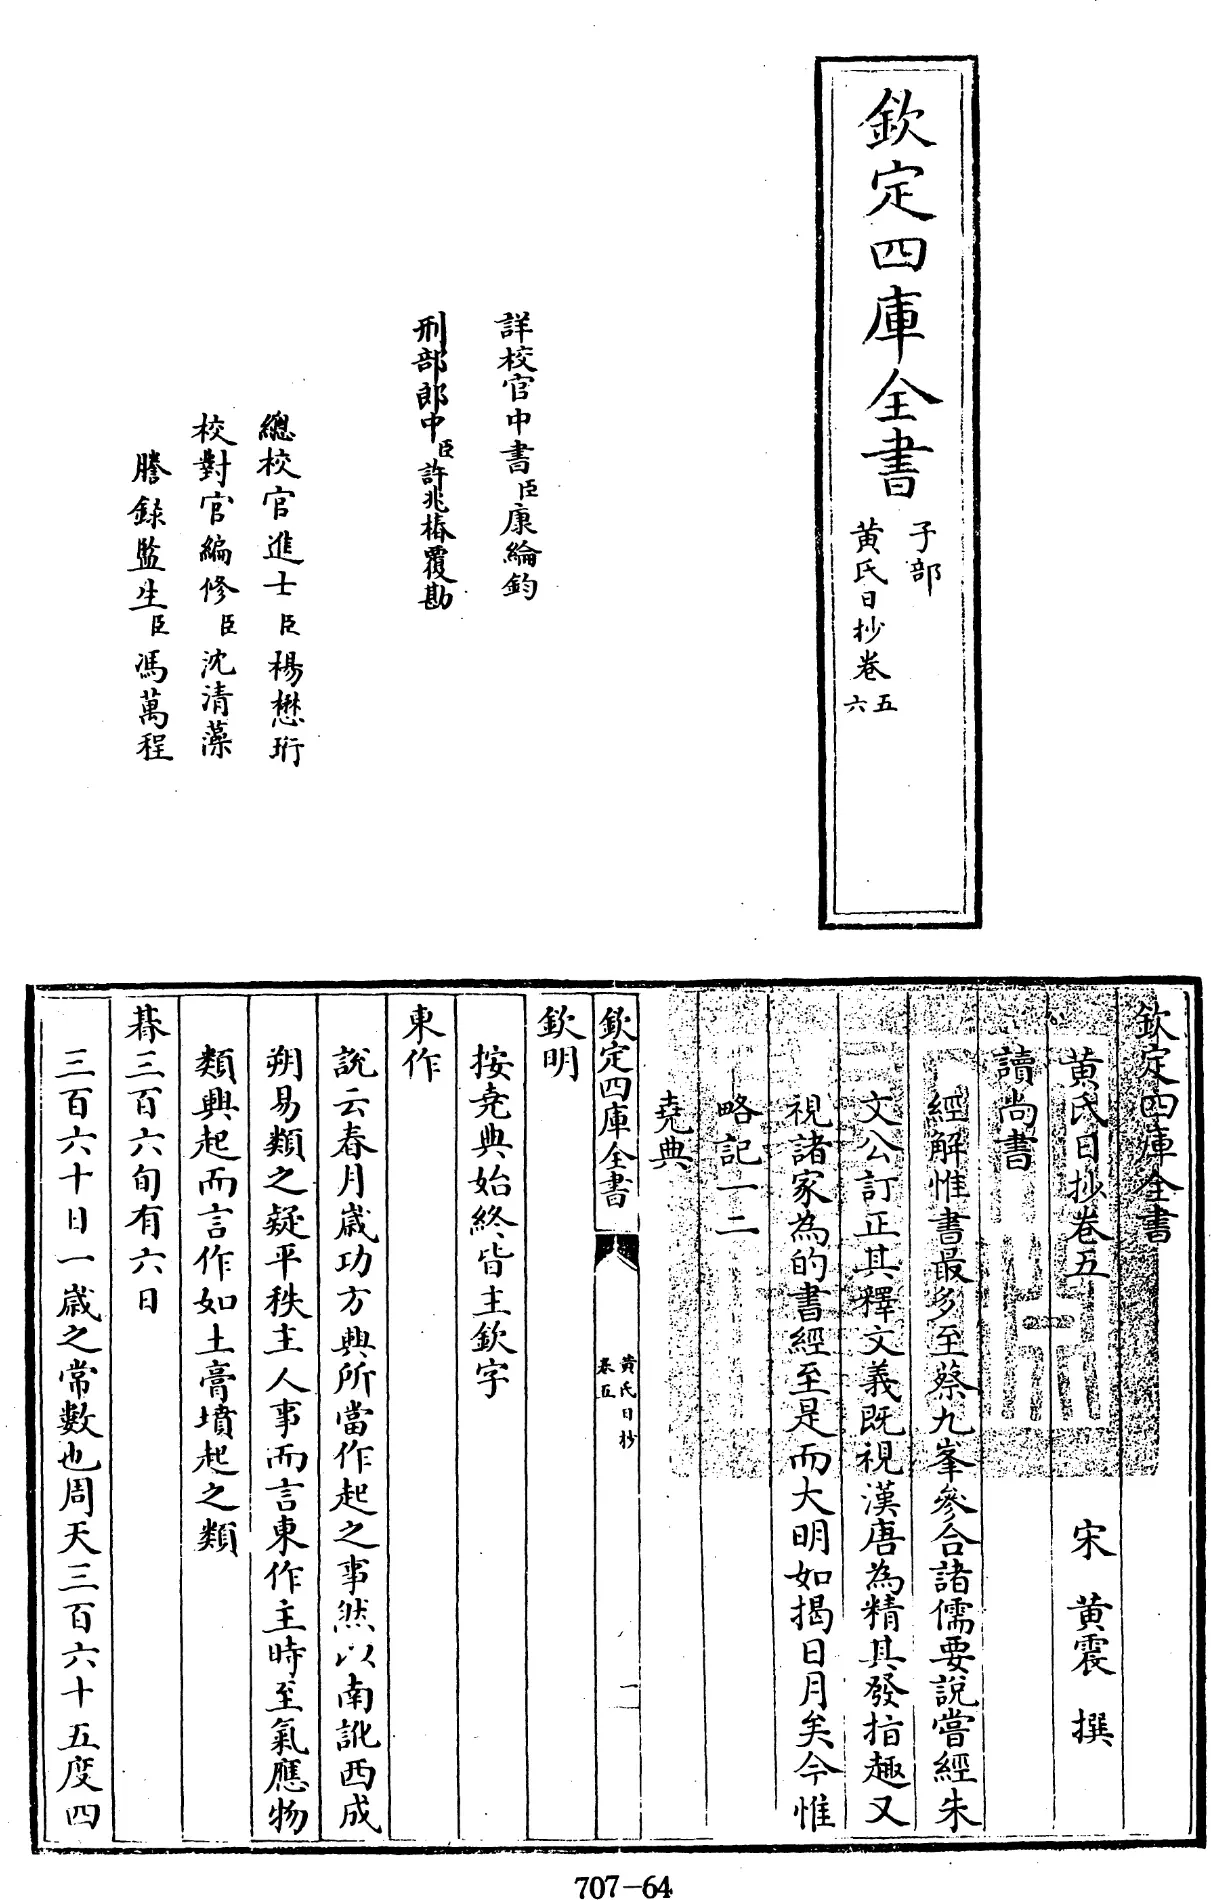 欽定四庫全書
子部
黄氏日抄卷五
六
詳校官中書臣康綸鈞
刑部郎中臣許兆椿覆勘
總校官進士臣楊懋珩
校對官編修臣沈清藻
謄錄監生臣馮萬程
欽定四庫全書
黄氏日抄卷五
宋 黄震 撰
讀尚書
經解惟書最多至蔡九峯參合諸儒要說嘗經朱
文公訂正其釋文義既視漢唐為精其發指趣又
視諸家為的書經至是而大明如揭日月矣今惟
略記一二
堯典
欽定四庫全書
黄氏日抄
卷五
一
欽明
按堯典始終皆主欽字
東作
說云春月歲功方興所當作起之事然以南訛西成
朔易類之疑平秩主人事而言東作主時至氣應物
類興起而言作如土膏墳起之類
朞三百六旬有六日
三百六十日一歲之常數也周天三百六十五度四
707-64